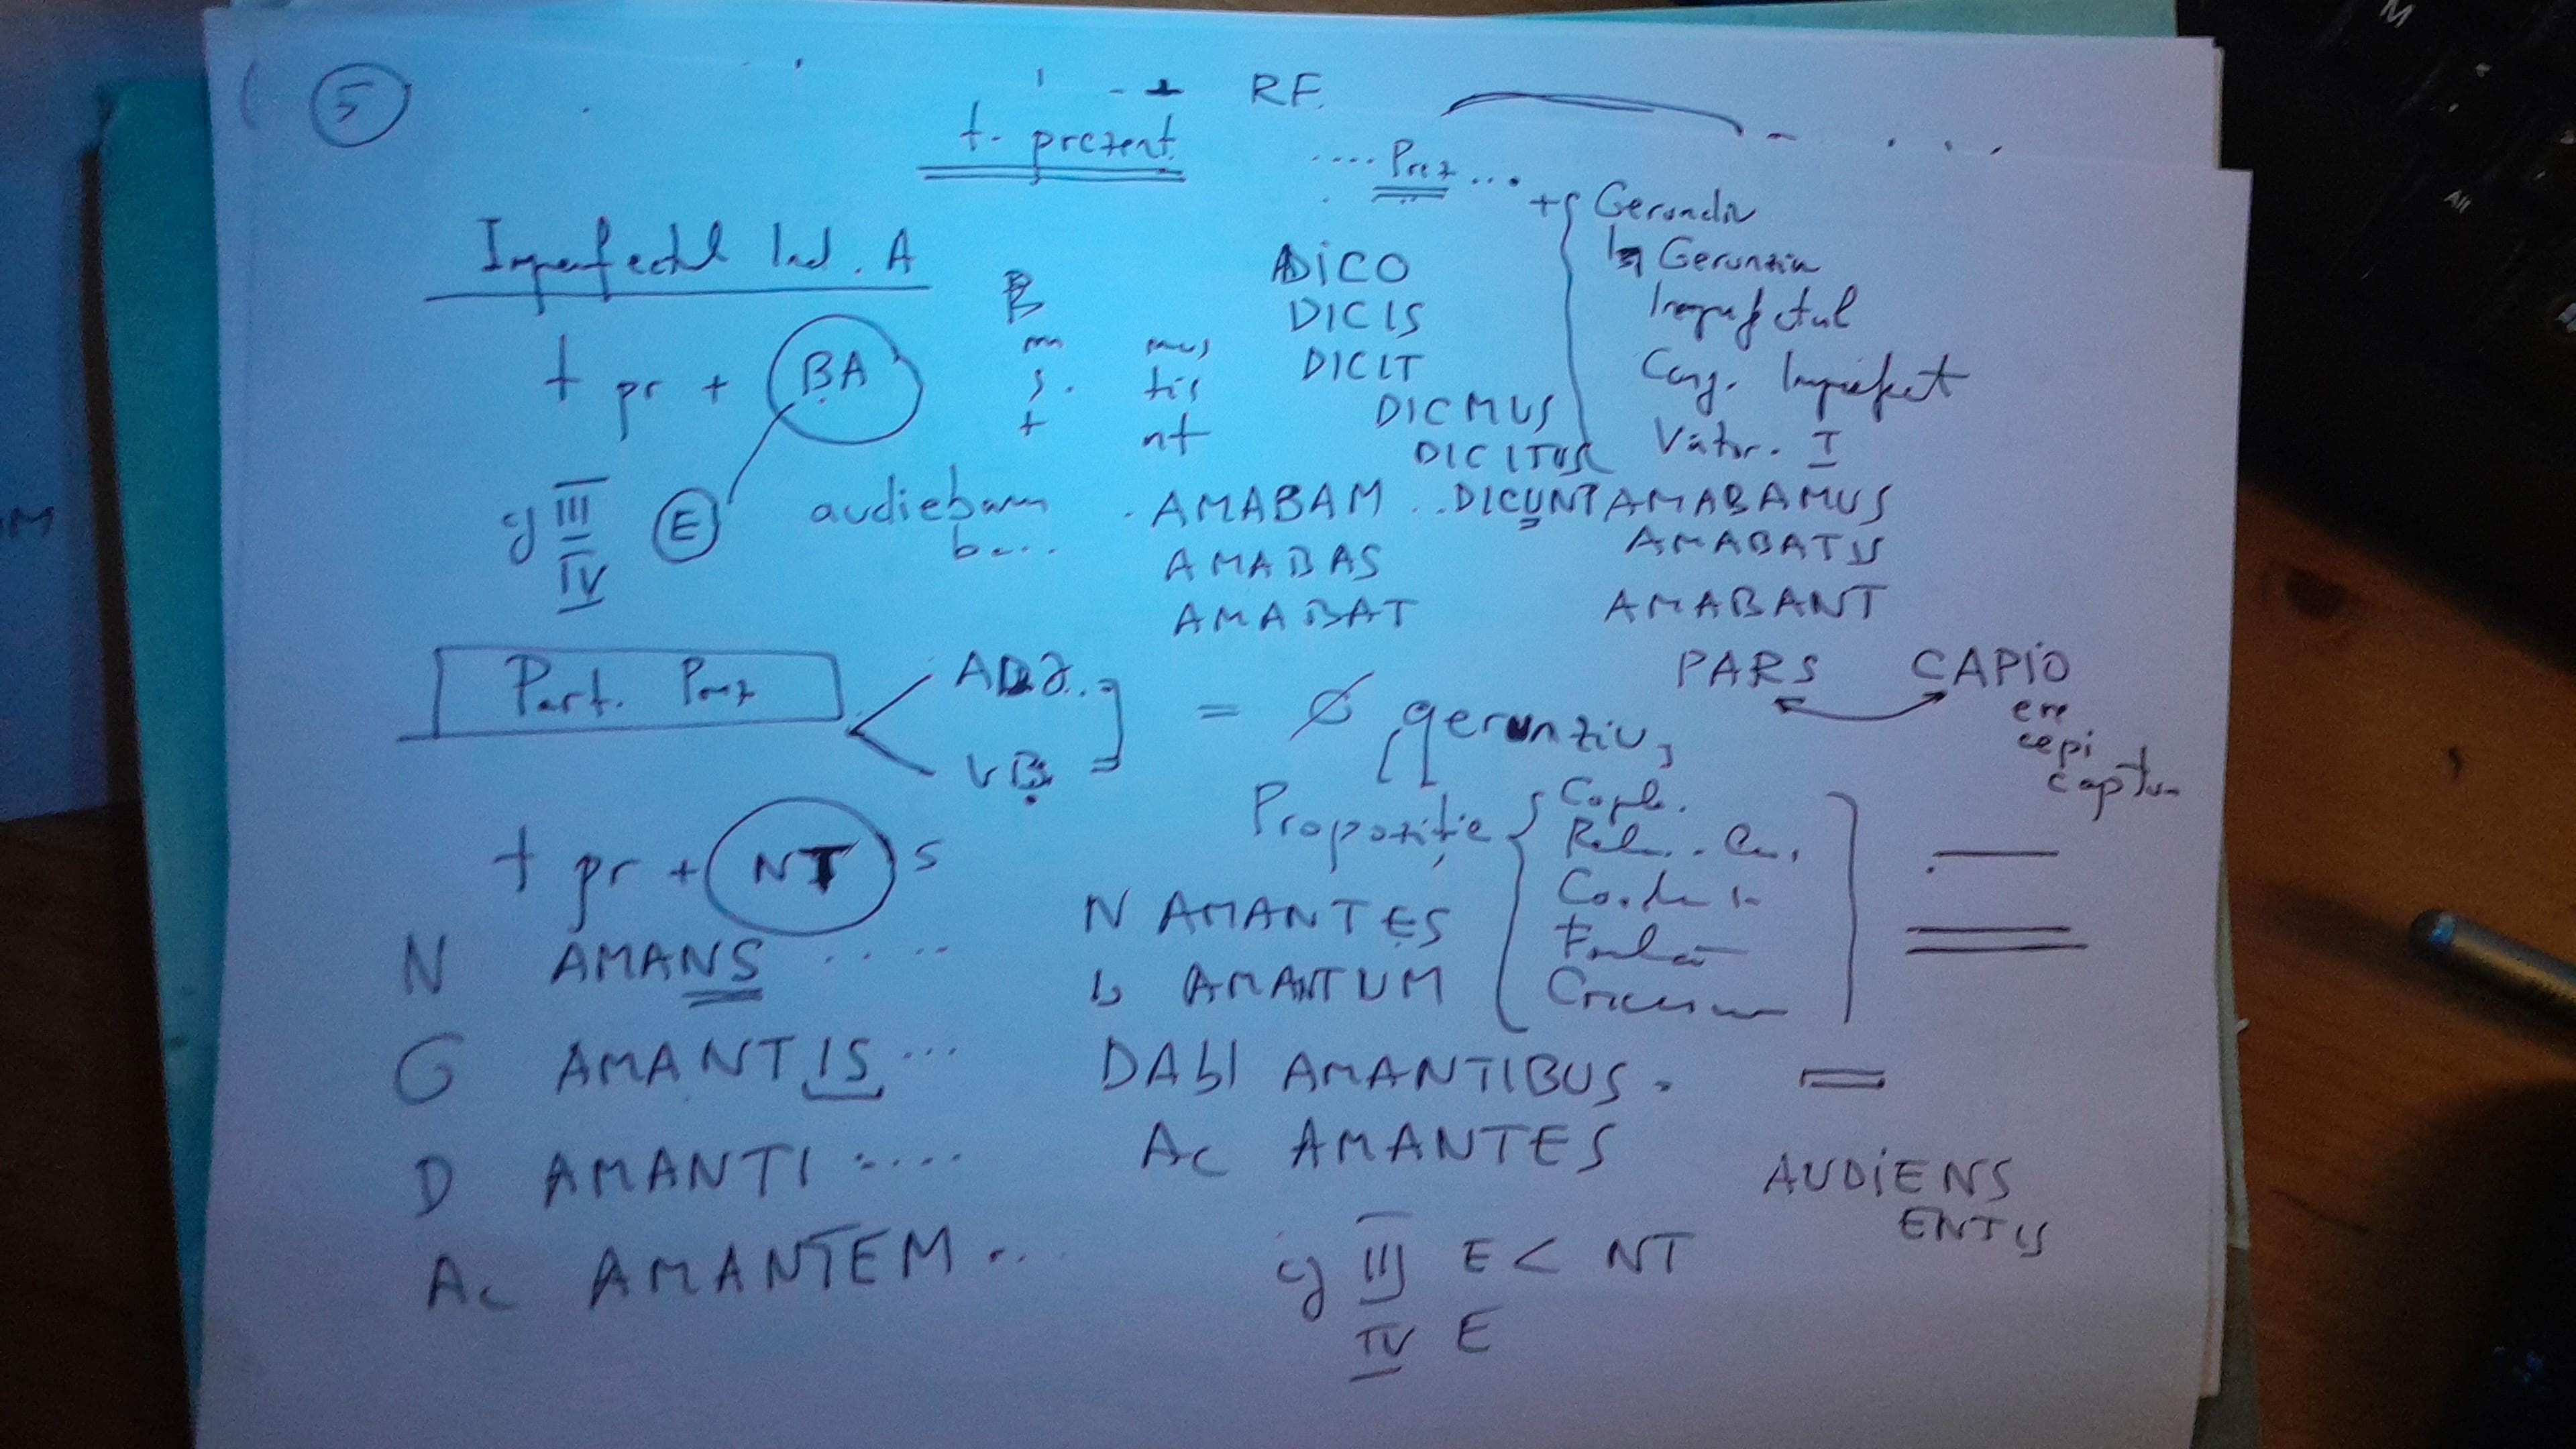 5
RF.
t. prezent
.... Prez ....
+ Gerundiv
Gerunziu
Imperfectul
Conj. Imperfect
Viitor. I
Imperfectul Ind. A
t pr + BA
m mus
s. tis
t nt
DICO
DICIS
DICIT
DICMUS
DICUNT
cj III E
IV
audiebam
ba...
AMABAM ..
AMABAS
AMABAT
AMABAMUS
AMABATIS
AMABANT
Part. Prez
ADJ.
VB.
= Ø gerunziu,
PARS CAPIO
ere
cepi
captum
Propoziție
t pr + NT s
N AMANS ....
G AMANTIS ...
D AMANTI ....
Ac AMANTEM ...
N AMANTES
AMANTUM
DAbl AMANTIBUS.
Ac AMANTES
AUDIENS
ENTIS
cj III E < NT
IV E
M
Alt